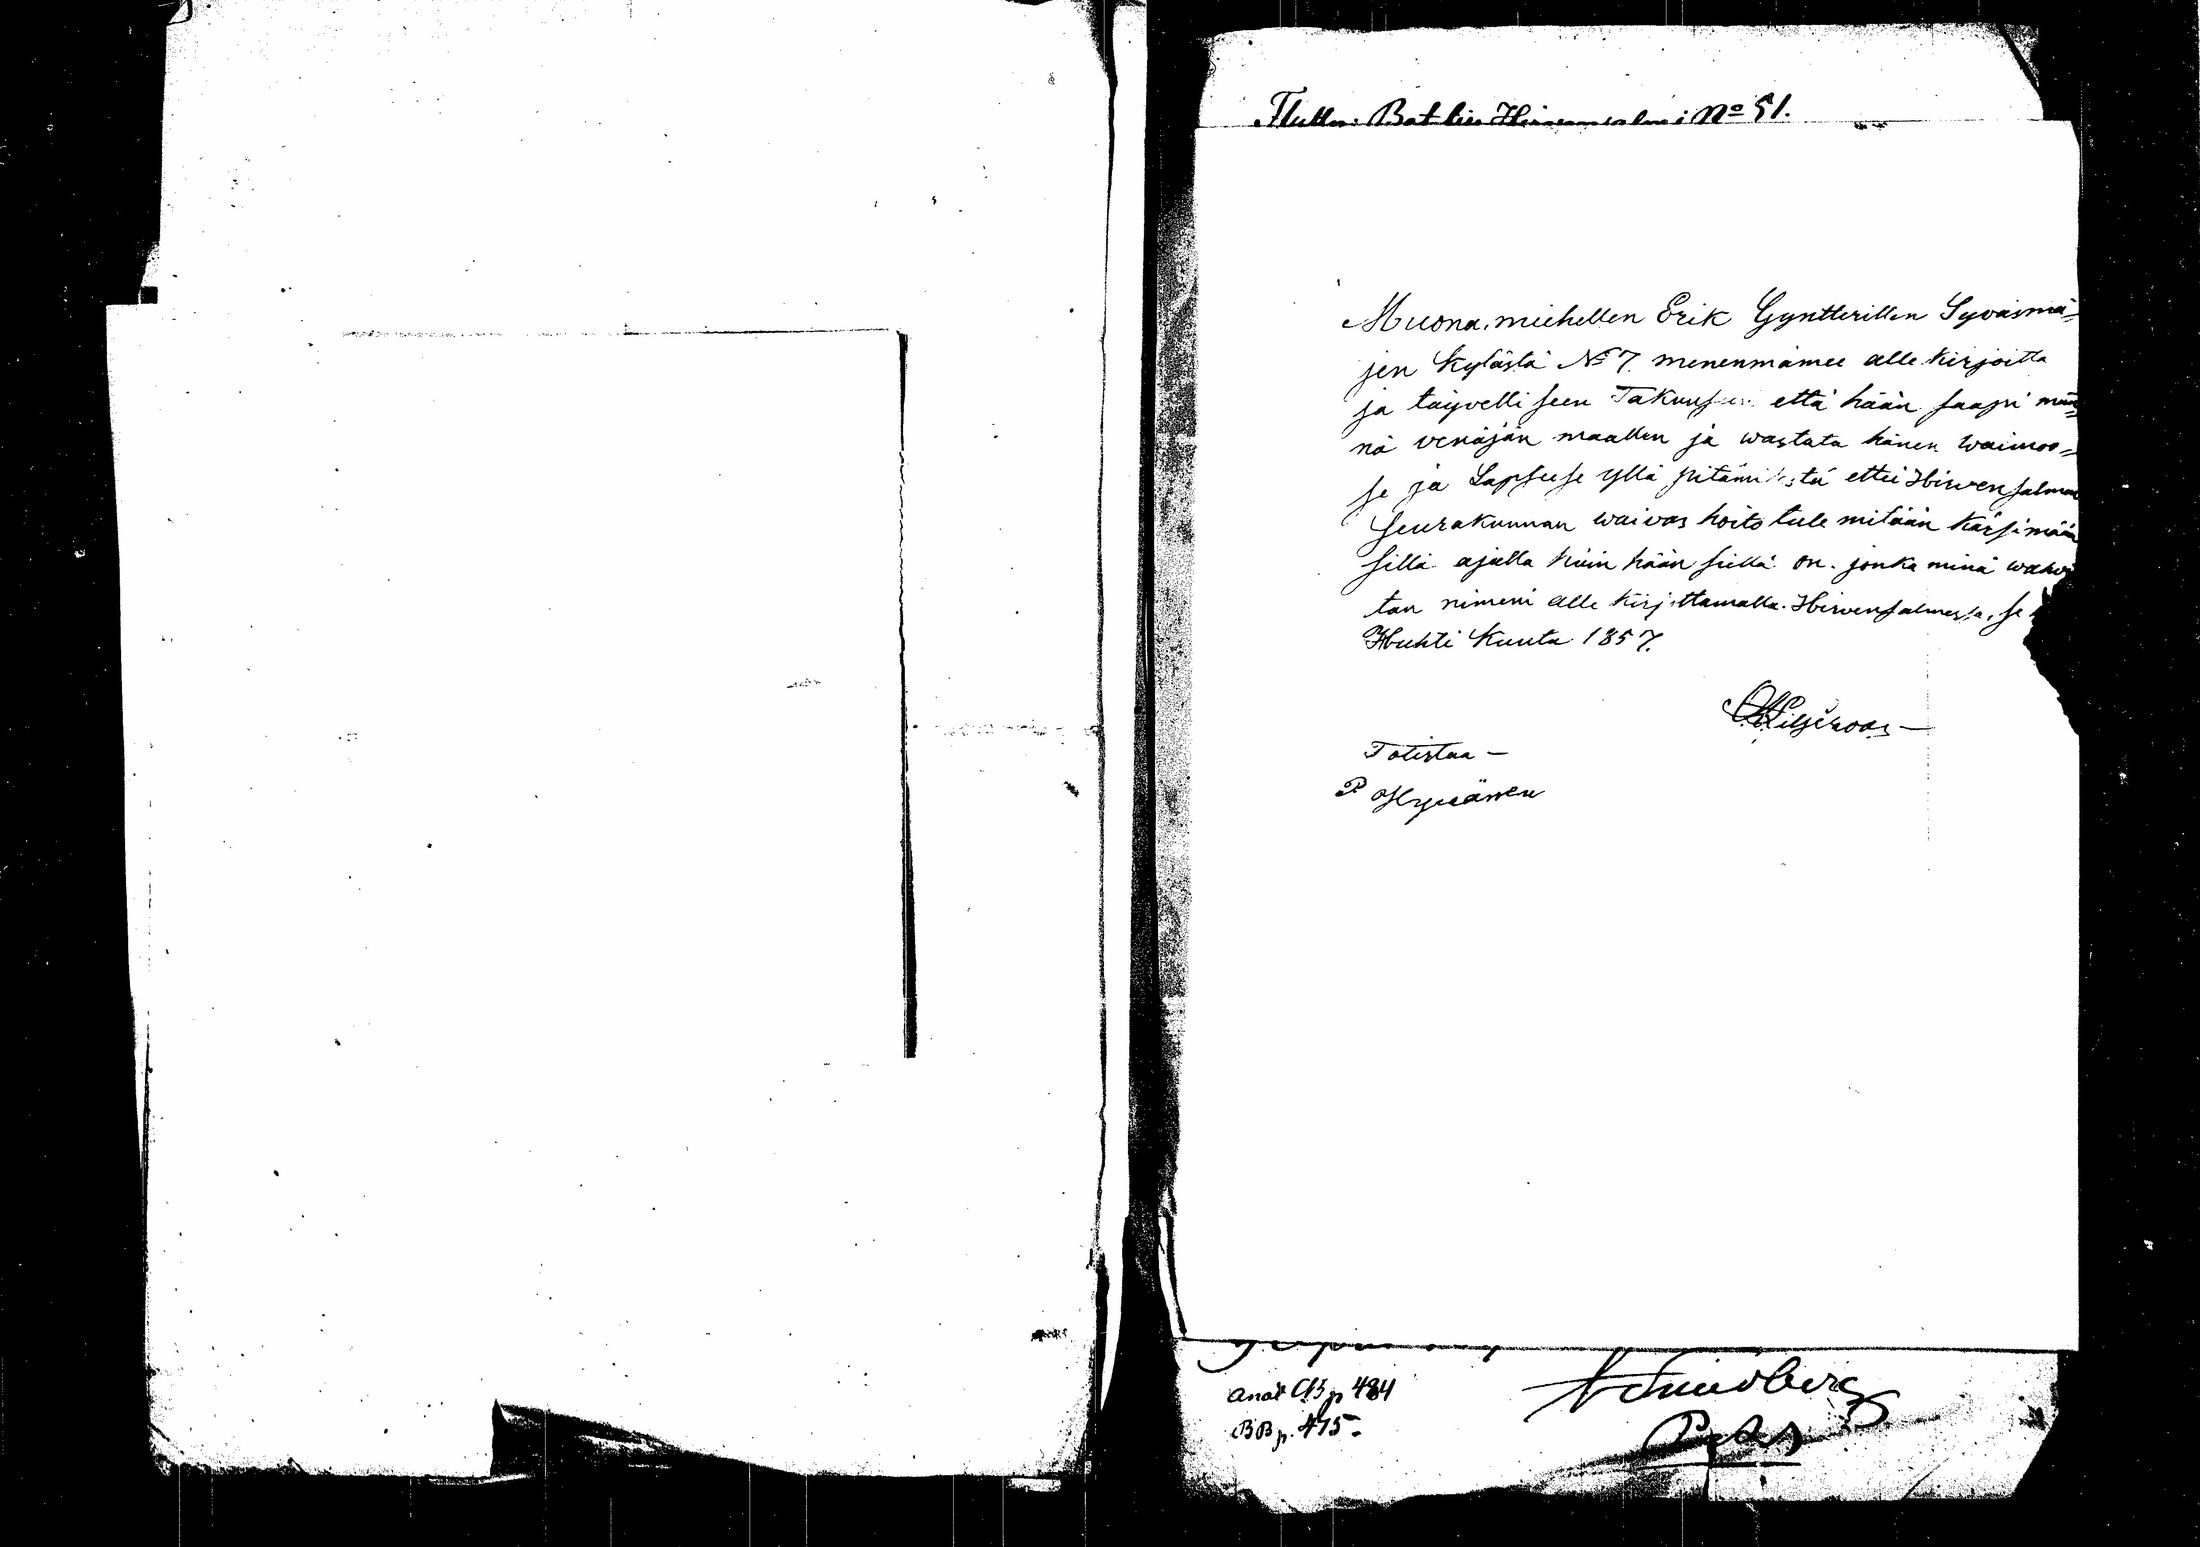 Batln Hirvensalmi No 51.
Muona, miehellen Erik Gyntterillen Syväsmä=
jen Kylästä No 7. menenmämee alle kirjoitta
ja täyvelliseen Takuusen että hään saapi män=
nä venäjän maallen ja wastata hänen waimoo=
se ja Lapseese yllä pitämisestä ettei Hirvensalmen
seurakunnan waivas hoito tule mitään kärsimään
sillä ajalla kuin hään siellä on. jonka minä wahvis
tan nimeni alle kirjottamalla. Hirvensalmessa, se
Huhti Kuuta 1857.
Totistaa —
P Hyvännen
anat p 484
BB p. 475